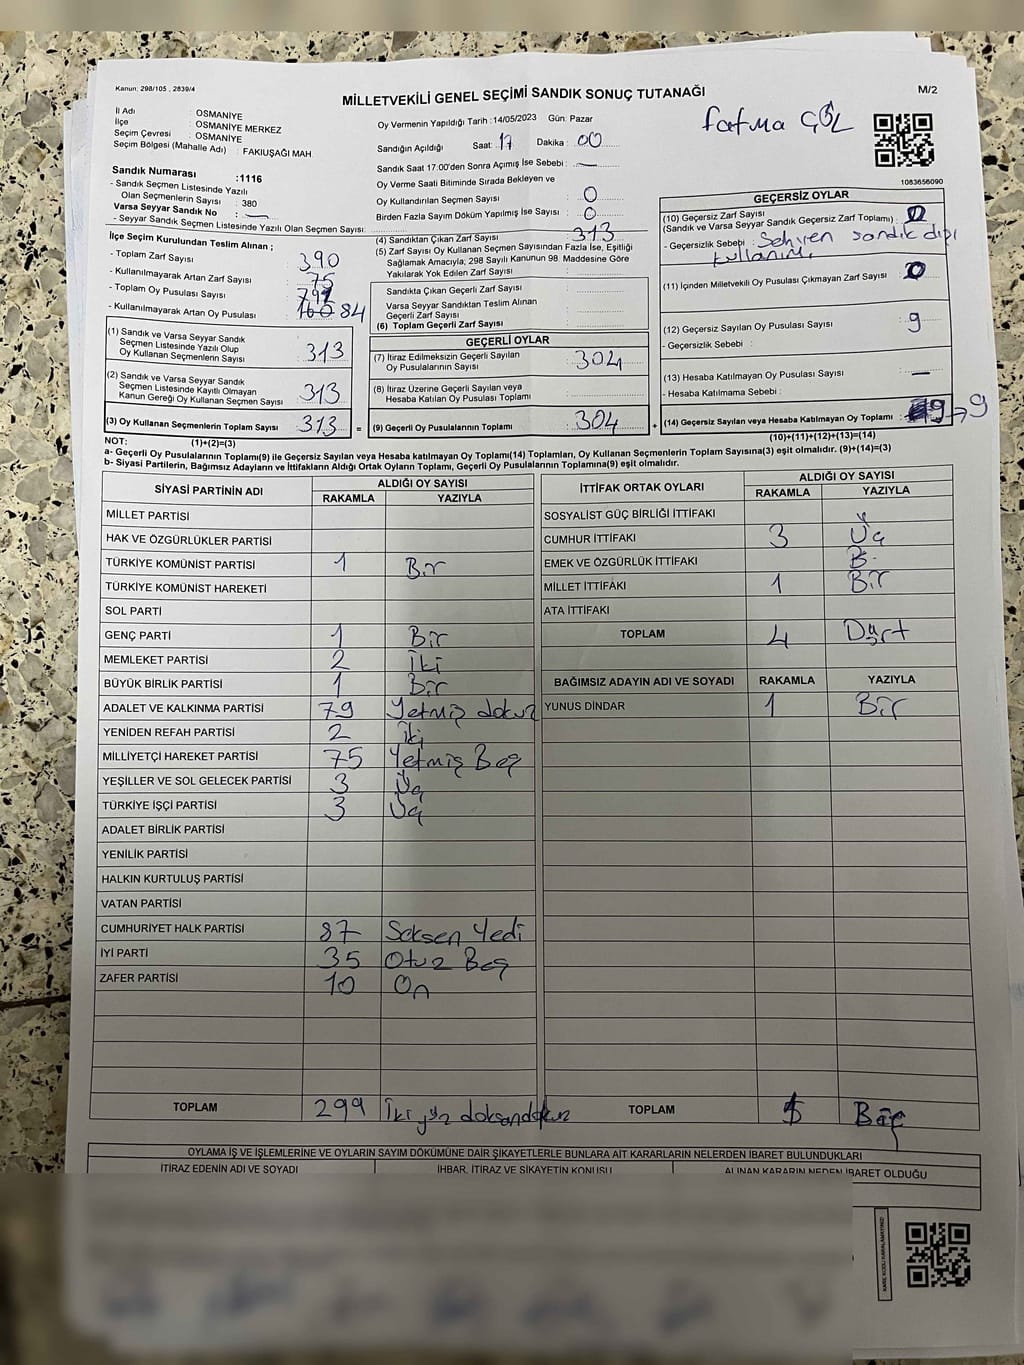 Kanun: 298/105 , 2839/4
MİLLETVEKİLİ GENEL SEÇİMİ SANDIK SONUÇ TUTANAĞI
M/2
fatma ÇÖL
İl Adı : OSMANİYE
İlçe : OSMANİYE MERKEZ
Seçim Çevresi : OSMANİYE
Seçim Bölgesi (Mahalle Adı) : FAKIUŞAĞI MAH.
Sandık Numarası :1116
- Sandık Seçmen Listesinde Yazılı
Olan Seçmenlerin Sayısı : 380
Varsa Seyyar Sandık No : —
- Seyyar Sandık Seçmen Listesinde Yazılı Olan Seçmen Sayısı:
Oy Vermenin Yapıldığı Tarih :14/05/2023 Gün: Pazar
Sandığın Açıldığı Saat: 17 Dakika : 00
Sandık Saat 17:00'den Sonra Açımış İse Sebebi : —
Oy Verme Saati Bitiminde Sırada Bekleyen ve
Oy Kullandırılan Seçmen Sayısı : 0
Birden Fazla Sayım Döküm Yapılmış İse Sayısı : 0
1083656090
İlçe Seçim Kurulundan Teslim Alınan ;
- Toplam Zarf Sayısı : 390
- Kullanılmayarak Artan Zarf Sayısı : 75
- Toplam Oy Pusulası Sayısı :
- Kullanılmayarak Artan Oy Pusulası : 84
(1) Sandık ve Varsa Seyyar Sandık
Seçmen Listesinde Yazılı Olup
Oy Kullanan Seçmenlerin Sayısı : 313
(2) Sandık ve Varsa Seyyar Sandık
Seçmen Listesinde Kayıtlı Olmayan
Kanun Gereği Oy Kullanan Seçmen Sayısı : 313
(3) Oy Kullanan Seçmenlerin Toplam Sayısı : 313 =
(4) Sandıktan Çıkan Zarf Sayısı : 313
(5) Zarf Sayısı Oy Kullanan Seçmen Sayısından Fazla İse, Eşitliği
Sağlamak Amacıyla; 298 Sayılı Kanunun 98. Maddesine Göre
Yakılarak Yok Edilen Zarf Sayısı :
Sandıkta Çıkan Geçerli Zarf Sayısı :
Varsa Seyyar Sandıktan Teslim Alınan
Geçerli Zarf Sayısı :
(6) Toplam Geçerli Zarf Sayısı :
GEÇERLİ OYLAR
(7) İtiraz Edilmeksizin Geçerli Sayılan
Oy Pusulalarının Sayısı : 304
(8) İtiraz Üzerine Geçerli Sayılan veya
Hesaba Katılan Oy Pusulası Toplamı :
(9) Geçerli Oy Pusulalarının Toplamı : 304 +
GEÇERSİZ OYLAR
(10) Geçersiz Zarf Sayısı
(Sandık ve Varsa Seyyar Sandık Geçersiz Zarf Toplamı) :
- Geçersizlik Sebebi : sandık dışı
kullanım
(11) İçinden Milletvekili Oy Pusulası Çıkmayan Zarf Sayısı : 0
(12) Geçersiz Sayılan Oy Pusulası Sayısı : 9
- Geçersizlik Sebebi :
(13) Hesaba Katılmayan Oy Pusulası Sayısı : —
- Hesaba Katılmama Sebebi :
(14) Geçersiz Sayılan veya Hesaba Katılmayan Oy Toplamı : 9 → 9
(10)+(11)+(12)+(13)=(14)
NOT: (1)+(2)=(3)
a- Geçerli Oy Pusulalarının Toplamı(9) ile Geçersiz Sayılan veya Hesaba katılmayan Oy Toplamı(14) Toplamları, Oy Kullanan Seçmenlerin Toplam Sayısına(3) eşit olmalıdır. (9)+(14)=(3)
b- Siyasi Partilerin, Bağımsız Adayların ve İttifakların Aldığı Ortak Oyların Toplamı, Geçerli Oy Pusulalarının Toplamına(9) eşit olmalıdır.
SİYASİ PARTİNİN ADI ALDIĞI OY SAYISI
RAKAMLA YAZIYLA
MİLLET PARTİSİ
HAK VE ÖZGÜRLÜKLER PARTİSİ
TÜRKİYE KOMÜNİST PARTİSİ 1 Bir
TÜRKİYE KOMÜNİST HAREKETİ
SOL PARTİ
GENÇ PARTİ 1 Bir
MEMLEKET PARTİSİ 2 İki
BÜYÜK BİRLİK PARTİSİ 1 Bir
ADALET VE KALKINMA PARTİSİ 79 Yetmiş dokuz
YENİDEN REFAH PARTİSİ 2 İki
MİLLİYETÇİ HAREKET PARTİSİ 75 Yetmiş Beş
YEŞİLLER VE SOL GELECEK PARTİSİ 3 Üç
TÜRKİYE İŞÇİ PARTİSİ 3 Üç
ADALET BİRLİK PARTİSİ
YENİLİK PARTİSİ
HALKIN KURTULUŞ PARTİSİ
VATAN PARTİSİ
CUMHURİYET HALK PARTİSİ 87 Seksen Yedi
İYİ PARTİ 35 Otuz Beş
ZAFER PARTİSİ 10 On
TOPLAM 299 İki yüz doksandokuz
İTTİFAK ORTAK OYLARI ALDIĞI OY SAYISI
RAKAMLA YAZIYLA
SOSYALİST GÜÇ BİRLİĞİ İTTİFAKI
CUMHUR İTTİFAKI 3 Üç
EMEK VE ÖZGÜRLÜK İTTİFAKI
MİLLET İTTİFAKI 1 Bir
ATA İTTİFAKI
TOPLAM 4 Dört
BAĞIMSIZ ADAYIN ADI VE SOYADI RAKAMLA YAZIYLA
YUNUS DİNDAR 1 Bir
TOPLAM 5 Beş
OYLAMA İŞ VE İŞLEMLERİNE VE OYLARIN SAYIM DÖKÜMÜNE DAİR ŞİKAYETLERLE BUNLARA AİT KARARLARIN NELERDEN İBARET BULUNDUKLARI
İTİRAZ EDENİN ADI VE SOYADI İHBAR, İTİRAZ VE ŞİKAYETİN KONUSU ALINAN KARARIN NEDEN İBARET OLDUĞU